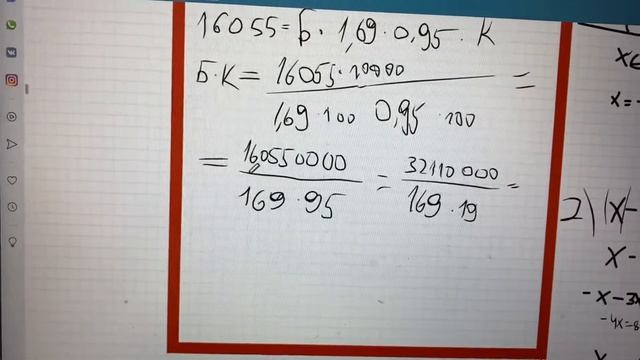 16055=Б·1,69·0,95·К
Б·К=16055·10000/1,69·100 0,95·100=
=160550000/169·95=32110000/169·19=
x∈
x=-
2) |x|-
x-
-x-3x
-4x=8
x